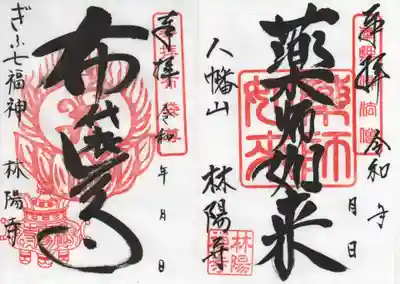 奉拝 令和 年
月 日
薬師如来
八幡山 林陽寺
林陽寺
奉拝 令和 年 月 日
布袋尊
ぎふ七福神 林陽寺